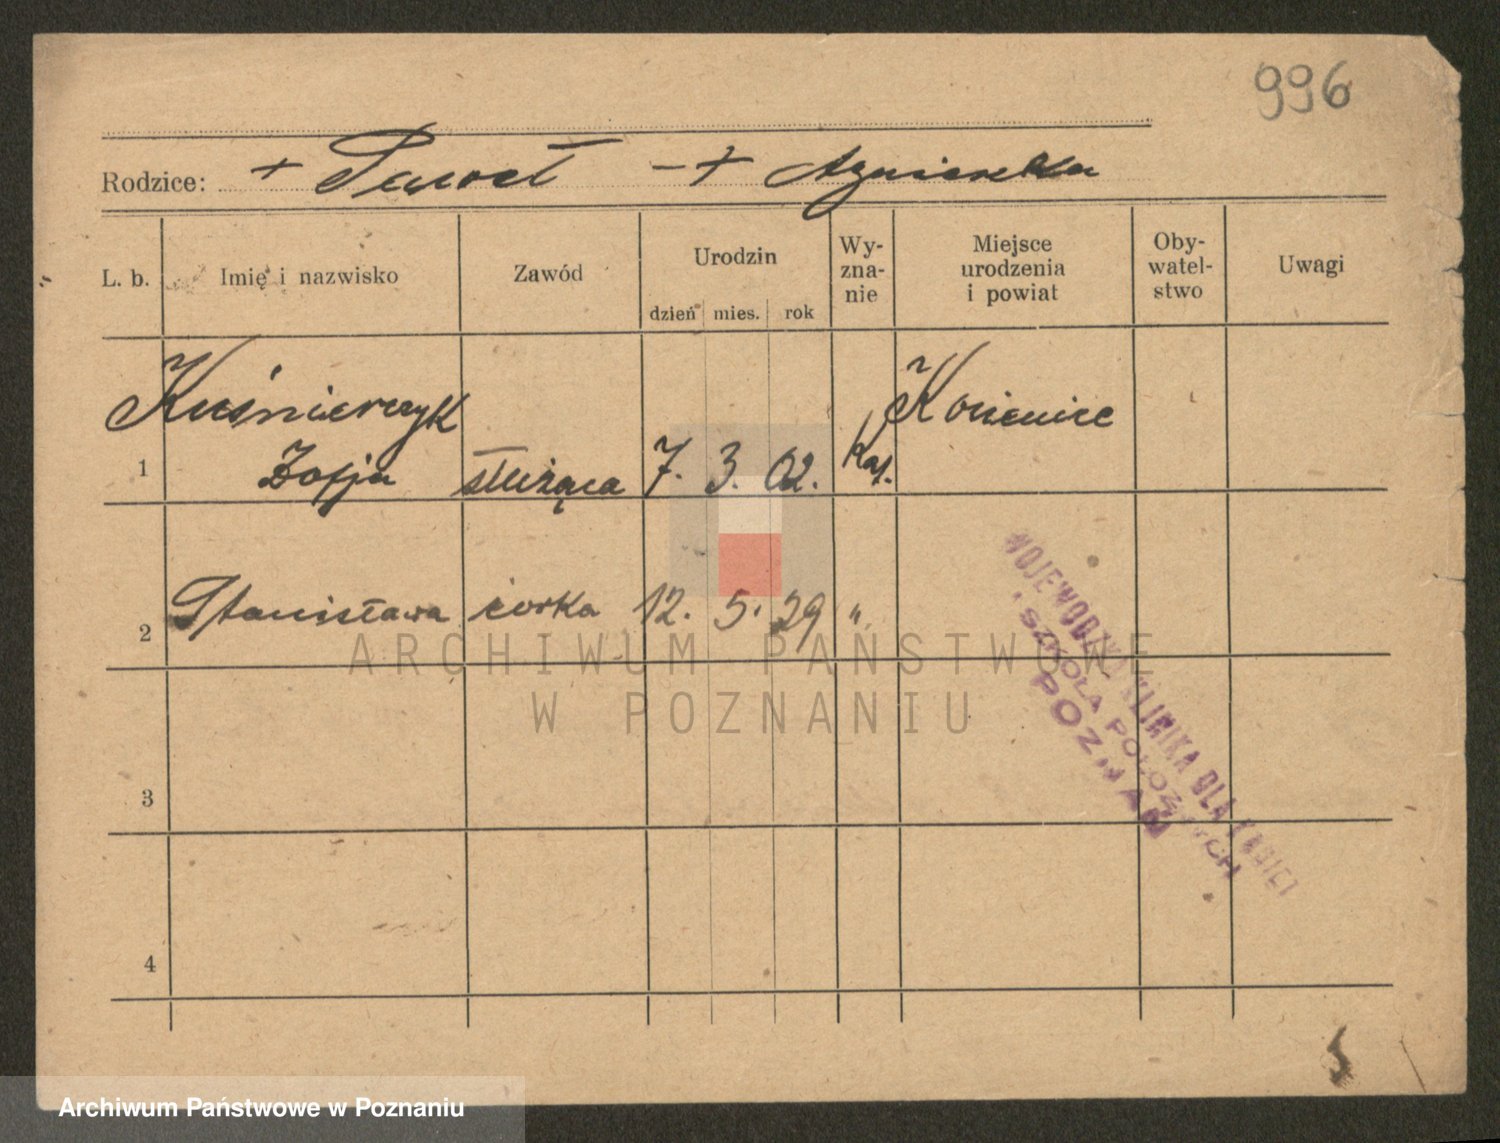 996
Rodzice: + Paweł - + Agnieszka
L. b. Imię i nazwisko Zawód Urodzin dzień mies. rok Wy-zna-nie Miejsce urodzenia i powiat Oby-watel-stwo Uwagi
Kuśnierczyk
1 Zofja służąca 7. 3. 02. Kat. Kosienice
2 Stanisława córka 12. 5. 29 "
3
4
WOJEWÓDZKA KLINIKA DLA KOBIET
i SZKOŁA POŁOŻNYCH
POZNAŃ
ARCHIWUM PAŃSTWOWE
W POZNANIU
Archiwum Państwowe w Poznaniu